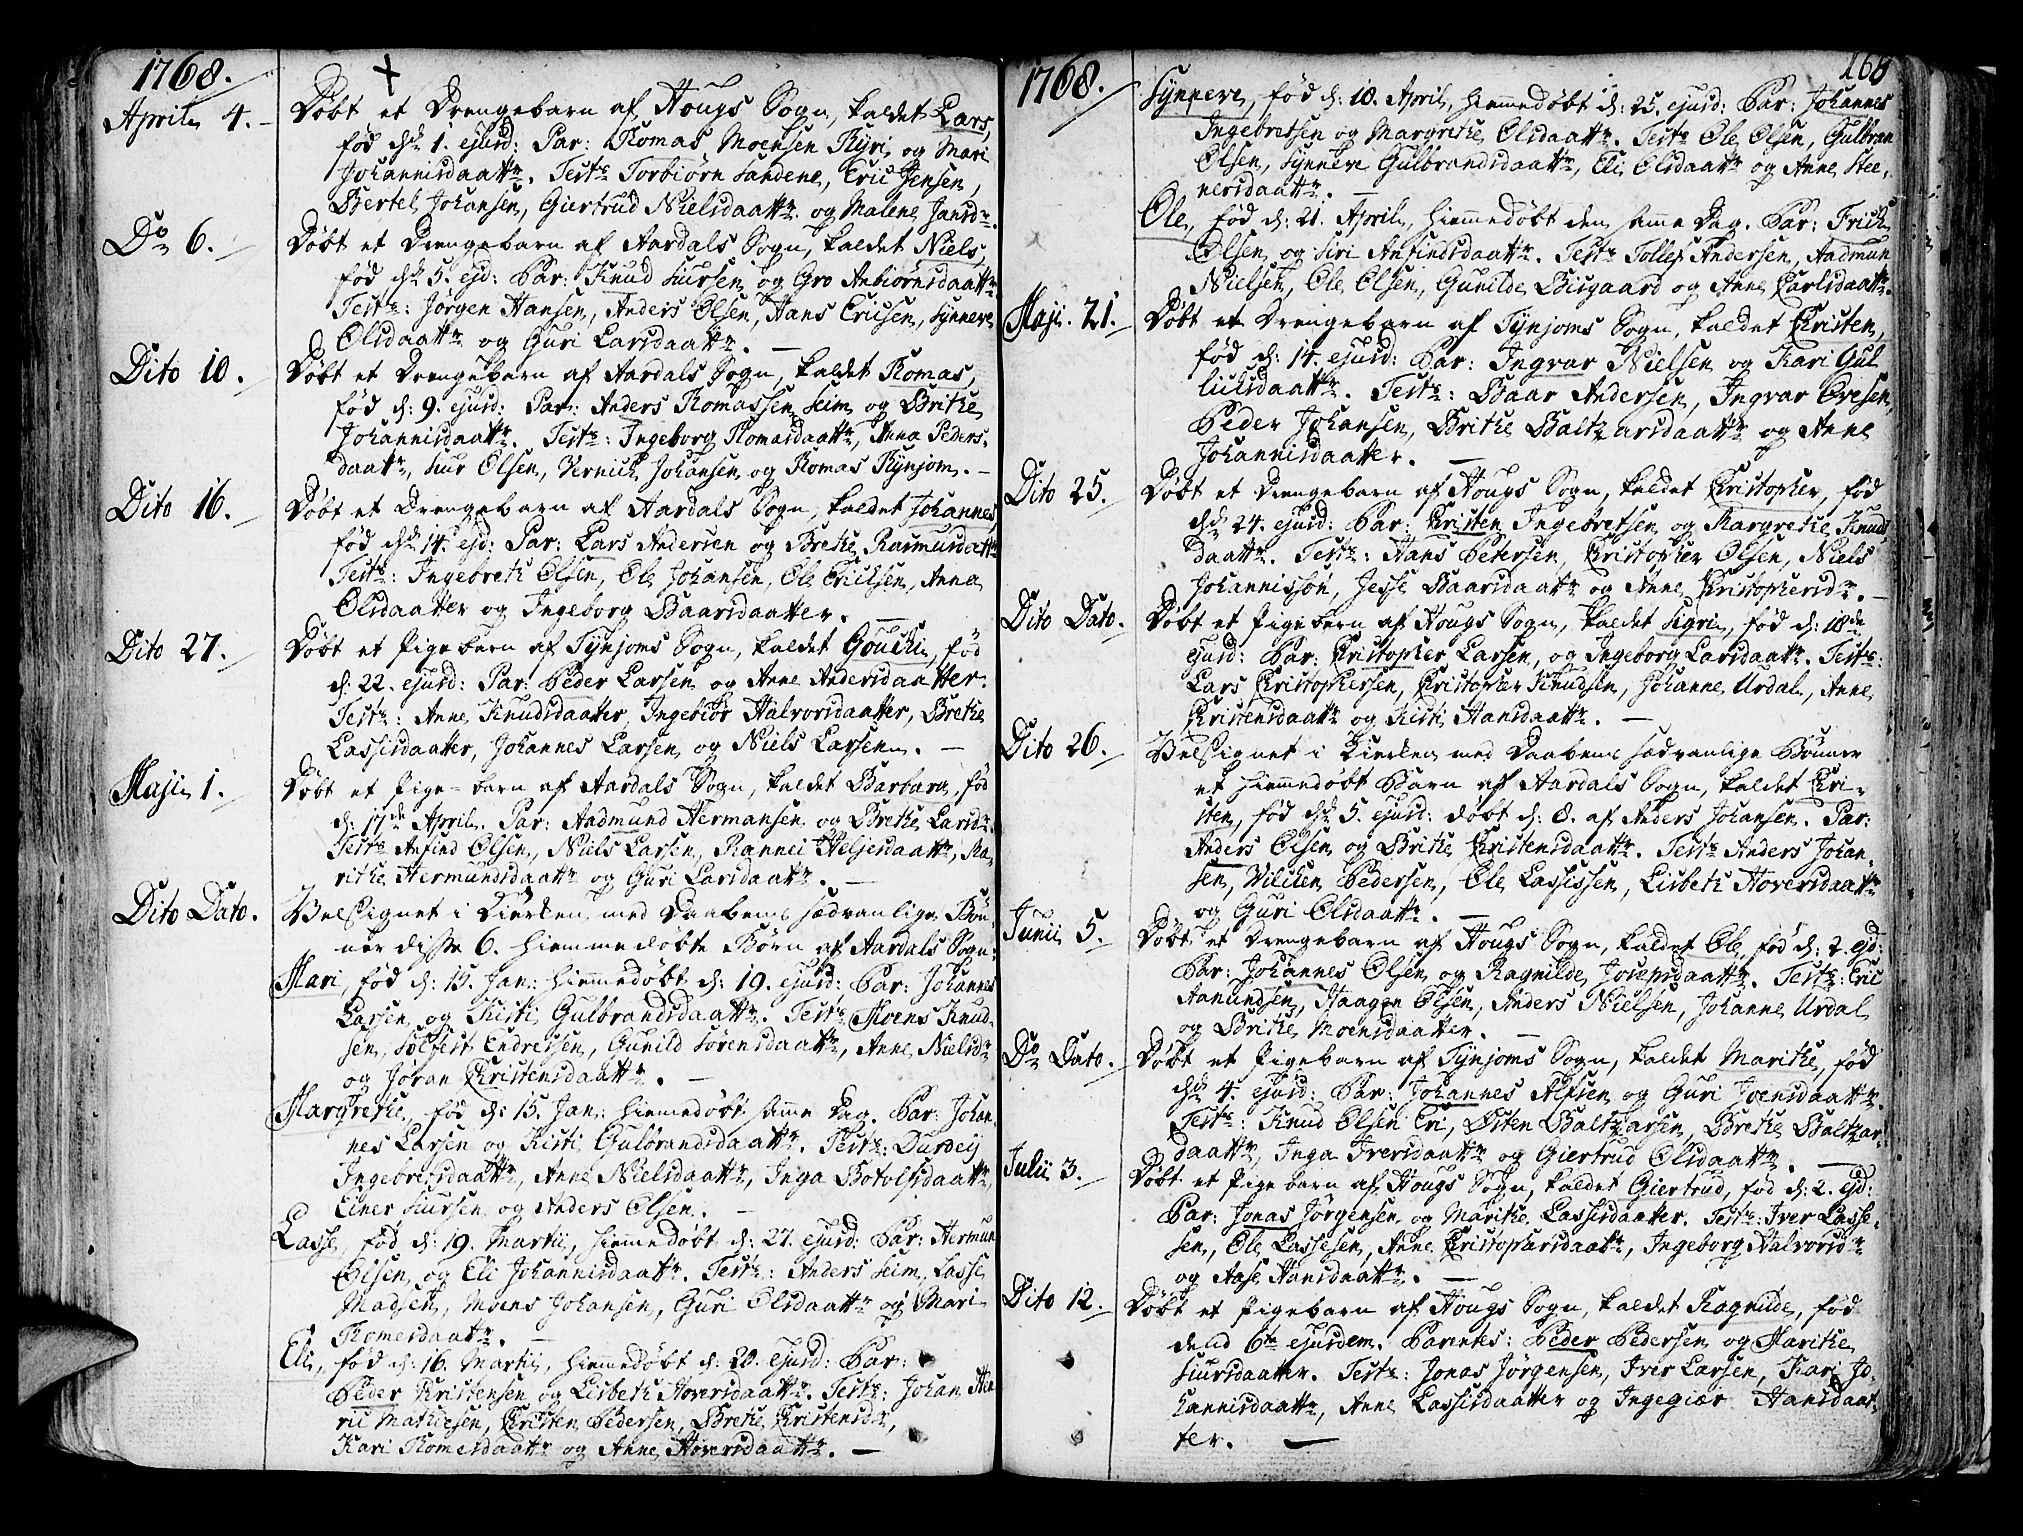 1768.
April 4. Døbt et Drengebarn af Hougs Sogn, kaldet Lars,
fød d: 1. ejusd: Par: Thomas Moensen Thyri og Mari
Johannisdaattr. Testr Torbiørn Sandene, Eric Jensen,
Bertel Johansen, Giertrud Nielsdaattr og Malene Jansdr.
Do 6. Døbt et Drengebarn af Aardals Sogn, kaldet Niels,
fød d: 5. ejd: Par: Knud Siursen og Gro Anbiørnsdaattr
Testr: Jørgen Hansen, Anders Olsen, Hans Ericsen, Synneve
Olsdaattr og Guri Larsdaattr. —
Dito 10. Døbt et Drengebarn af Aardals Sogn, kaldet Thomas,
fød d: 9. ejusd: Par: Anders Thomassen Seim og Brithe
Johannisdaattr. Testr: Ingeborg Thomasdaattr, Anna Peders-
daattr, Siur Olsen, Vernich Johansen og Thomas Thynjom. —
Dito 16. Døbt et Drengebarn af Aardals Sogn, kaldet Johannes
fød d: 14. ejd: Par: Lars Andersen og Brethe Rasmusdattr
Testr: Ingebreth Olsen, Ole Johansen, Ole Ericksen, Anna
Olsdaatter og Ingeborg Baarsdaatter. —
Dito 27. Døbt et Pigebarn af Tynjoms Sogn, kaldet Gouchi, fød
d: 22. ejusd: Par: Peder Larsen og Anne Andersdaatter.
Testr: Anne Knudsdaatter, Ingebiør Halvorsdaatter, Brethe
Lassisdaatter, Johannes Larsen og Niels Larsen. —
Maji 1. Døbt et Pige-barn af Aardals Sogn, kaldet Barbara, fød
d: 17de April. Par: Aadmund Hermansen og Brethe Larsdr.
Testr Anfind Olsen, Niels Larsen, Rannei Heljesdaattr, Ma-
rithe Hermundsdaattr og Guri Larsdaattr. —
Dito Dato. Velsignet i Kierken med Daabens sædvanlige Bøn-
ner disse 6. hiemmedøbte Børn af Aardals Sogn:
Mari, fød d: 15. Jan: hiemmedøbt d: 19. ejusd: Par: Johannes
Larsen og Kisti Gulbrandsdaattr. Testr Moens Knud-
sen, Solfest Endressen, Gunild Sørensdaattr, Anne Nielsdr
og Joran Christensdaattr. —
Margrethe, fød d: 15. Jan: hiemmedøbt samme Dag. Par: Johan-
nes Larsen og Kisti Gulbrandsdaattr. Testr: Durdeij
Ingebretsdaattr, Anne Nielsdaattr, Inga Botolfsdaattr,
Einer Siursen og Anders Olsen. —
Lasse, fød d: 19. Martii, hiemmedøbt d: 27. ejusd: Par: Hermun
Olsen og Eli Johannisdaattr. Testr: Anders Seim, Lasse
Madsen, Moens Johansen, Guri Olsdaattr og Mari
Thomesdaattr. —
Eli, fød d: 16. Martii, hiemmedøbt d: 20. ejusd: Par:
Peder Christensen og Lisbeth Hoversdaattr. Testr: Johan Hen
ric Mathiesen, Christen Pedersen, Brethe Christensdr,
Kari Thomesdaattr og Anne Hoversdaattr. —
168
1768. Synneve, fød d: 18. April, hiemmedøbt d: 25. ejusd: Par: Johannes
Ingebretsen og Margrethe Olsdaattr. Testr Ole Olsen, Gulbran
Olsen, Synneve Gulbrandsdaattr, Eli Olsdaattr og Anne Stee-
nersdaattr. —
Ole, fød d: 21. April, hiemmedøbt den samme Dag. Par: Frich
Olsen og Siri Anfindsdaattr. Testr Tollef Andersen, Aadmun
Nielsen, Ole Olsen, Gunilde Bisgaard og Anne Carlsdaattr.
Maji. 21. Døbt et Drengebarn af Tynjoms Sogn, kaldet Christen,
fød d: 14. ejusd: Par: Ingvar Nielsen og Kari Gul
lichsdaattr. Testr: Baar Andersen, Ingvar Evesen,
Peder Johansen, Brithe Baltzarsdaattr og Anne
Johannisdaatter. —
Dito 25. Døbt et Drengebarn af Hougs Sogn, kaldet Christopher, fød
d: 24. ejusd: Par: Christen Ingebretsen og Margrethe Knuds
daattr. Testr: Hans Petersen, Christopher Olsen, Niels
Johannissøn, Jesse Baarsdaattr og Anne Christophersdr. —
Dito Dato. Døbt et Pigebarn af Hougs Sogn, kaldet Sigri, fød d: 18de
ejusd: Par: Christopher Larsen, og Ingeborg Larsdaattr. Testr:
Lars Christophersen, Christopher Knudsen, Johanne Urdal, Anne
Christensdaattr og Kisti Hansdaattr. —
Dito 26. Velsignet i Kierken med Daabens sædvanlige Bønner
et hiemmedøbt Barn af Aardals Sogn, kaldet Chri-
sten, fød d: 5. ejusd: døbt d: 8. af Anders Johansen. Par:
Anders Olsen og Brithe Christensdaattr. Testr Anders Johan-
sen, Vilichen Pedersen, Ole Lassissen, Lisbeth Hoversdaattr
og Guri Olsdaattr. —
Junii 5. Døbt et Drengebarn af Hougs Sogn, kaldet Ole, fød d: 2. ejd:
Par: Johannes Olsen og Ragnilde Josepsdaattr. Testr: Eric
Aamundsen, Haagen Olsen, Anders Nielsen, Johanne Urdal
og Brithe Moensdaatter. —
Do Dato. Døbt et Pigebarn af Tynjoms Sogn, kaldet Marithe, fød
d: 4. ejusd: Par: Johannes Alfsen og Guri Joensdaattr.
Testr: Knud Olsen Eri, Østen Baltzarsen, Brethe Baltzar-
daattr, Inga Iversdaattr og Giertrud Olsdaattr. —
Julii 3. Døbt et Pige barn af Hougs Sogn, kaldet Giertrud, fød d: 2. ejd:
Par: Jonas Jørgensen og Marithe Lassisdaatter. Testr: Iver Lasse-
sen, Ole Lassesen, Anne Christophersdaattr, Ingeborg Halvorsdr
og Aase Hansdaattr. —
Dito 12. Døbt et Pigebarn af Hougs Sogn, kaldet Ragnilde, fød
dend 6te ejusdem. Parentes: Peder Pedersen og Marithe
Siursdaatter. Testr: Jonas Jørgensen, Iver Larsen, Kari Jo-
hannisdaattr, Anne Lassisdaatter og Ingegiær Hansdaat-
ter. —